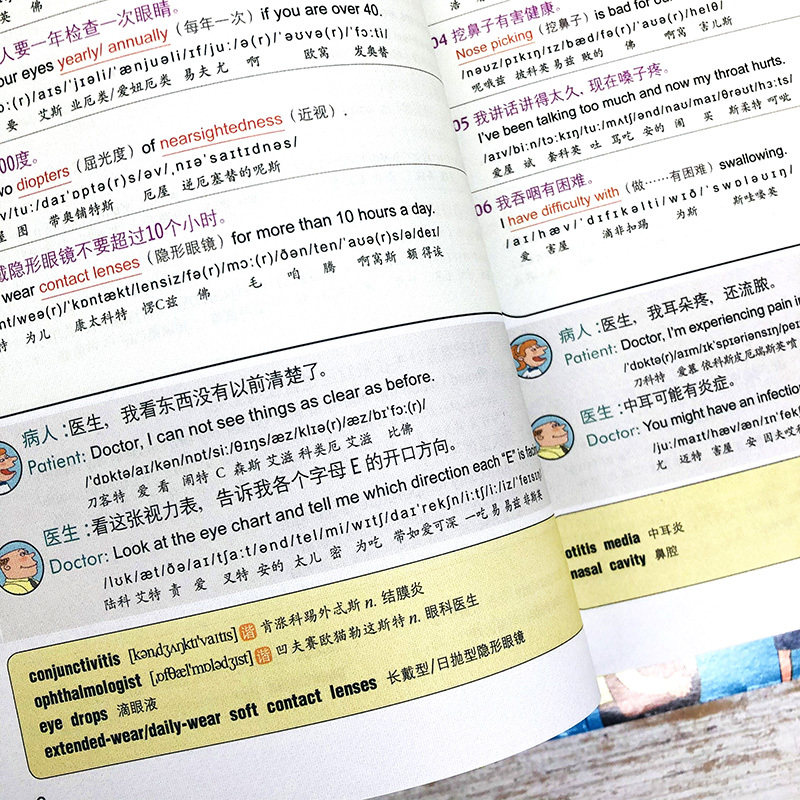 人要一年检查一次眼睛。
our eyes yearly/ annually（每年一次）if you are over 40.
ɔ:(r)/aɪs/ˈjɪəli/ˈænjuəli/ɪf/ju:/ə(r)/ˈəʊvə(r)/ˈfɔ:ti/
要 艾斯 业厄类/爱妞厄类 易夫 尤 啊 欧窝 发奥替
00度。
wo diopters（屈光度）of nearsightedness（近视）.
v/tu:/daɪˈɒptə(r)s/əv/ˌnɪəˈsaɪtɪdnəs/
屋 图 带奥铺特斯 厄屋 逆厄塞替的呢斯
戴隐形眼镜不要超过10个小时。
wear contact lenses（隐形眼镜）for more than 10 hours a day.
nt/weə(r)/ˈkɒntækt/lensiz/fə(r)/mɔ:(r)/ðən/ten/ˈaʊə(r)s/ə/deɪ/
特 为儿 康太科特 愣C兹 佛 毛 咱 腾 啊窝斯 额得诶
病人：医生，我看东西没有以前清楚了。
Patient: Doctor, I can not see things as clear as before.
/ˈdɒktə/aɪ/kən/nɒt/si:/θɪŋs/æz/klɪə(r)/æz/bɪˈfɔ:(r)/
刀客特 爱 看 闹特 C 森斯 艾滋 科类厄 艾滋 比佛
医生：看这张视力表，告诉我各个字母 E 的开口方向。
Doctor: Look at the eye chart and tell me which direction each “E” is fac
/lʊk/æt/ðə/aɪ/tʃa:t/ənd/tel/mi/wɪtʃ/daɪˈrekʃn/i:tʃ/i:/iz/ˈfeɪsɪŋ
陆科 艾特 责 爱 叉特 安的 太儿 密 为吃 带如爱可深 一吃 易 易兹 非斯英
conjunctivitis [kənˌdʒʌŋktɪˈvaɪtɪs] 谐 肯涨科踢外忒斯 n. 结膜炎
ophthalmologist [ˌɒfθælˈmɒlədʒɪst] 谐 凹夫赛欧猫勒这斯特 n. 眼科医生
eye drops 滴眼液
extended-wear/daily-wear soft contact lenses 长戴型/日抛型隐形眼镜
04 挖鼻子有害健康。
Nose picking（挖鼻子）is bad for our
/nəuz/pɪkɪŋ/ɪz/bæd/fə(r)/ˈaʊə(r)/helθ/
呢哦兹 拔科英 易兹 败的 佛 啊窝 害儿斯
05 我讲话讲得太久，现在嗓子疼。
I've been talking too much and now my throat hurts.
/aɪv/bi:n/tɔ:kɪŋ/tu:/mʌtʃ/ənd/naʊ/maɪ/θrəʊt/hɜ:ts/
爱屋 斌 套科英 吐 骂吃 安的 闹 买 斯柔特 呵呲
06 我吞咽有困难。
I have difficulty with（做……有困难）swallowing.
/aɪ/hæv/ˈdɪfɪkəlti/wɪð/ˈswɒləʊɪŋ/
爱 害屋 滴非扣踢 为斯 斯哇喽英
病人：医生，我耳朵疼，还流脓。
Patient: Doctor, I'm experiencing pain in
/ˈdɒktə(r)/aɪm/ɪkˈspɪəriənsɪŋ/peɪ
刀科特 爱慕 依科斯皮厄瑞斯英 喷
医生：中耳可能有炎症。
Doctor: You might have an infection
/ju:/maɪt/hæv/æn/ɪnˈfek
尤 迈特 害屋 安 因夫艾科
otitis media 中耳炎
nasal cavity 鼻腔